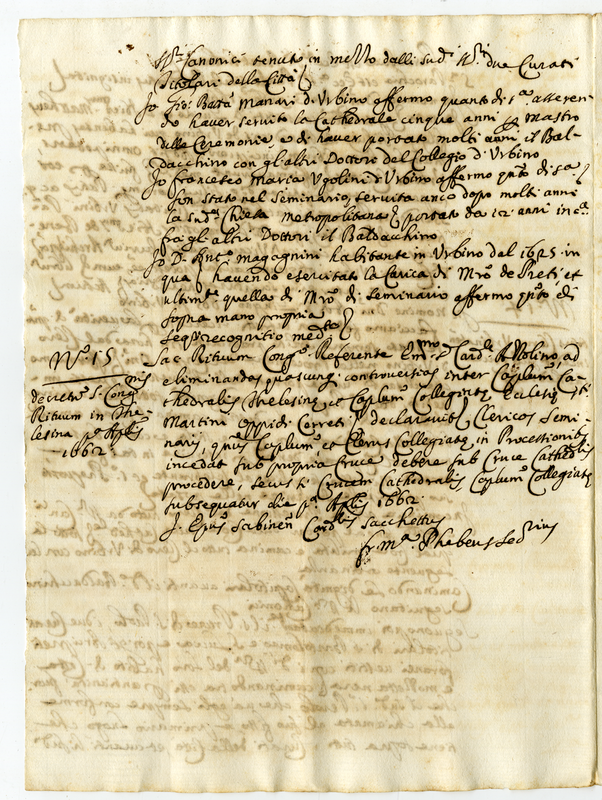 SSri Canonici tenuto in mezzo dalli sudi SSri due Curati
Titolari della Città
Io Gio: Batta Manari d'Urbino affermo quanto di sa asseren-
do haver servito la Cathedrale cinque anni p Mastro
delle Ceremonie, e di haver portato molti anni il Bal-
dacchino con gl'altri Dottori del Collegio d'Urbino
Io Francesco Maria Ugolini d'Urbino affermo qnto di sa
son stato nel Seminario, servita anco dopo molti anni
la sudta Chiesa Metropolitana, portato da 12 anni in ca
fra gl'altri Dottori il Baldacchino
Io D. Anto Magagnini habitante in Urbino dal 1625 in
qua havendo esercitato la Carica di Mro de Preti, et
ultimte quella di Mro di Seminario affermo qnto di
sopra mano propria
Seqr recognitio
No. 15
decretu S. Congnis
Rituum in The-
lesina pa Aplis
1662.
Sac. Rituum Congo Referente Emmo Cardle Azzolino, ad
eliminandas quascunq. controversias inter Caplum Ca-
thedralis Thelesing, et Caplum Collegiatę Ecclesię Sti
Martini Oppidi Cerreti declaravit Clericos Semi-
narij, qnus Caplum, et Clerus Collegiatę in Processionibus
incedat sub propria Cruce debere sub Cruce Cathedralis
procedere, secus si Crucem Cathedralis, Caplum Collegiatę
subsequatur die pa Aplis 1662.
J. Epus Sabinen Cardlis Sacchettus
fr. Ma. Phebeus Secrius